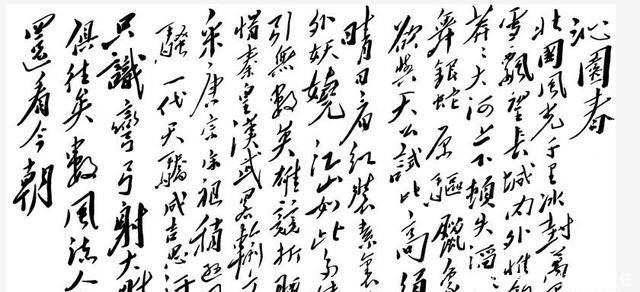 沁園春
北國風光千里冰封萬
雪飄望長城内外惟餘
莽々大河上下頓失滔々
舞銀蛇原驅臘象
欲與天公試比高須
晴日看紅裝素裹
外妖嬈江山如此多嬌
引無數英雄競折腰
惜秦皇漢武略輸文
采唐宗宋祖稍遜
騷一代天驕成吉思汗
只識彎弓射大雕
俱往矣數風流人
還看今朝